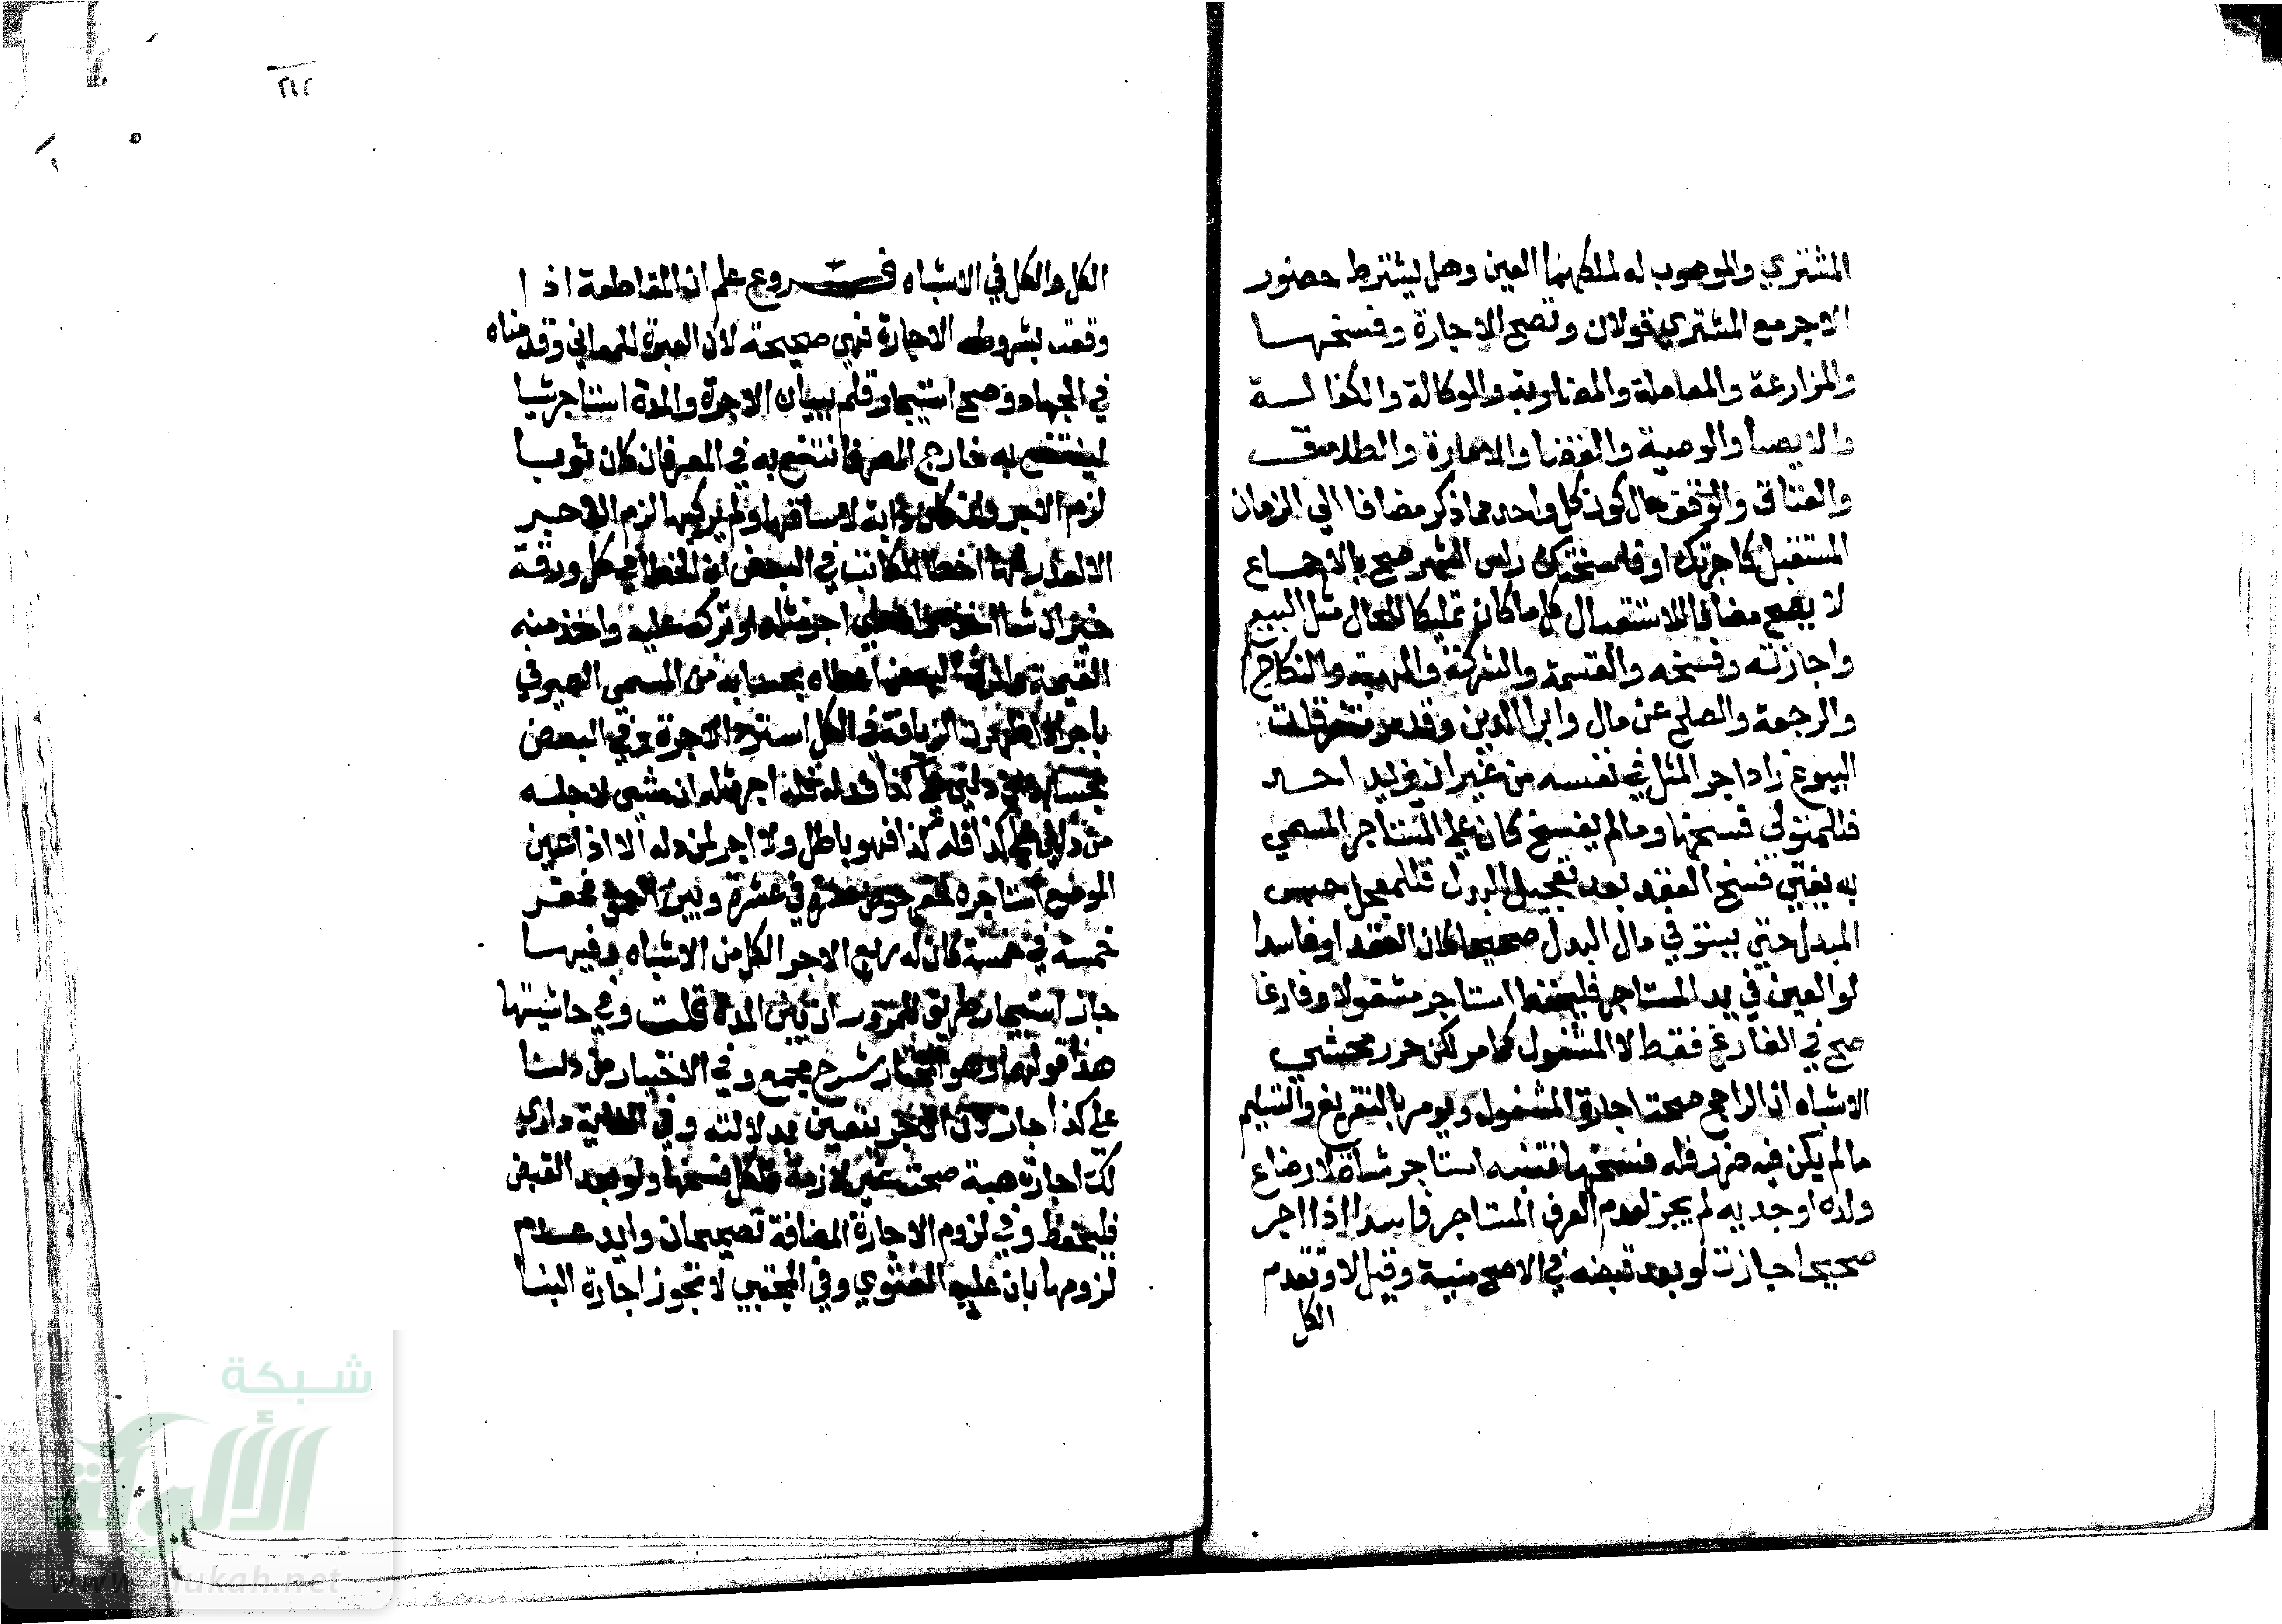 المشتري والموهوب له لملكهما العين وهل يشترط حضور
الاجر مع المشتري قولان وتصح الاجارة وفسخها
والمزارعة والمعاملة والمضاربة والوكالة والكفالة
والايصا والوصية والقضا والامارة والطلاق
والعتاق والوقف حال كون كل واحد مما ذكر مضافا الي الزمان
المستقبل كاجرتك او فاسختك راس الشهر صح بالاجماع
لا يصح مضافا للاستقبال كل ما كان تمليكا للحال مثل البيع
واجازته وفسخه والقسمة والشركة والهبة والنكاح
والرجعة والصلح عن مال وابرا الدين وقد مر متفرقات
البيوع زاد اجر المثل في نفسه من غير ان يزيد احد
فللمتولي فسخها وما لم يفسخ كان علي المستاجر المسمي
به يفتي فسخ العقد بعد تعجيل البدل فللمعجل حبس
المبدل حتي يستوفي مال البدل صحيحا كان العقد او فاسدا
لو العين في يد المستاجر فليحفظ استاجر مشغولا وفارغا
صح في الفارغ فقط لا المشغول كما مر لكن حرر محشي
الاشباه ان الراجح صحة اجارة المشغول ويومر بالتفريغ والتسليم
ما لم يكن فيه ضرر فله فسخها فتنبه استاجر شاة لارضاع
ولده او جديه لم يجز لعدم العرف المستاجر فاسدا اذا اجر
صحيحا جازت لو بعد قبضه في الاصح منية وقيل لا وتقدم
الكل
٢٤٢
الكل والكل في الاشباه فروع علم ان المقاطعة اذا
وقعت بشروط الاجارة فهي صحيحة لان العبرة للمعاني وقدمناه
في الجهاد وصح استيجار قلم ببيان الاجرة والمدة استاجر شيا
لينتفع به خارج المصر فانتفع به في المصر فان كان ثوبا
لزم الاجر وان كان دابة لا ساقها ولم يركبها لزم الاجر
الا لعذر بها اخطا الكاتب في البعض ان الخطا في كل ورقة
خير ان شا اخذه واعطي اجر مثله او تركه عليه واخذ منه
القيمة وان في البعض اعطاه بحسابه من المسمي الصيرفي
باجر اذا ظهرت الزيافة في الكل استرد الاجرة وفي البعض
بحسابه دلني علي كذا فله كذا فدله فله اجر مثله ان مشي لاجله
من دلني علي كذا فله كذا فهو باطل ولا اجر لمن دله الا اذا عين
الموضع استاجره لحفر حوض عشرة في عشرة وبين العمق فحفر
خمسة في خمسة كان له ربع الاجر الكل من الاشباه وفيها
جاز استيجار طريق للمرور ان بين المدة قلت وفي حاشيتها
هذا قولهما وهو المختار شرح مجمع وفي الاختيار من دلنا
علي كذا جاز لان الاجر يتعين بدلالته وفي الغاية داري
لك اجارة هبة صحت غير لازمة فلكل فسخها ولو بعد القبض
فليحفظ وفي لزوم الاجارة المضافة تصحيحان وايد عدم
لزومها بان عليه الفتوي وفي المجتبي لا تجوز اجارة البنا
شبكة
الألوكة
www.alukah.net